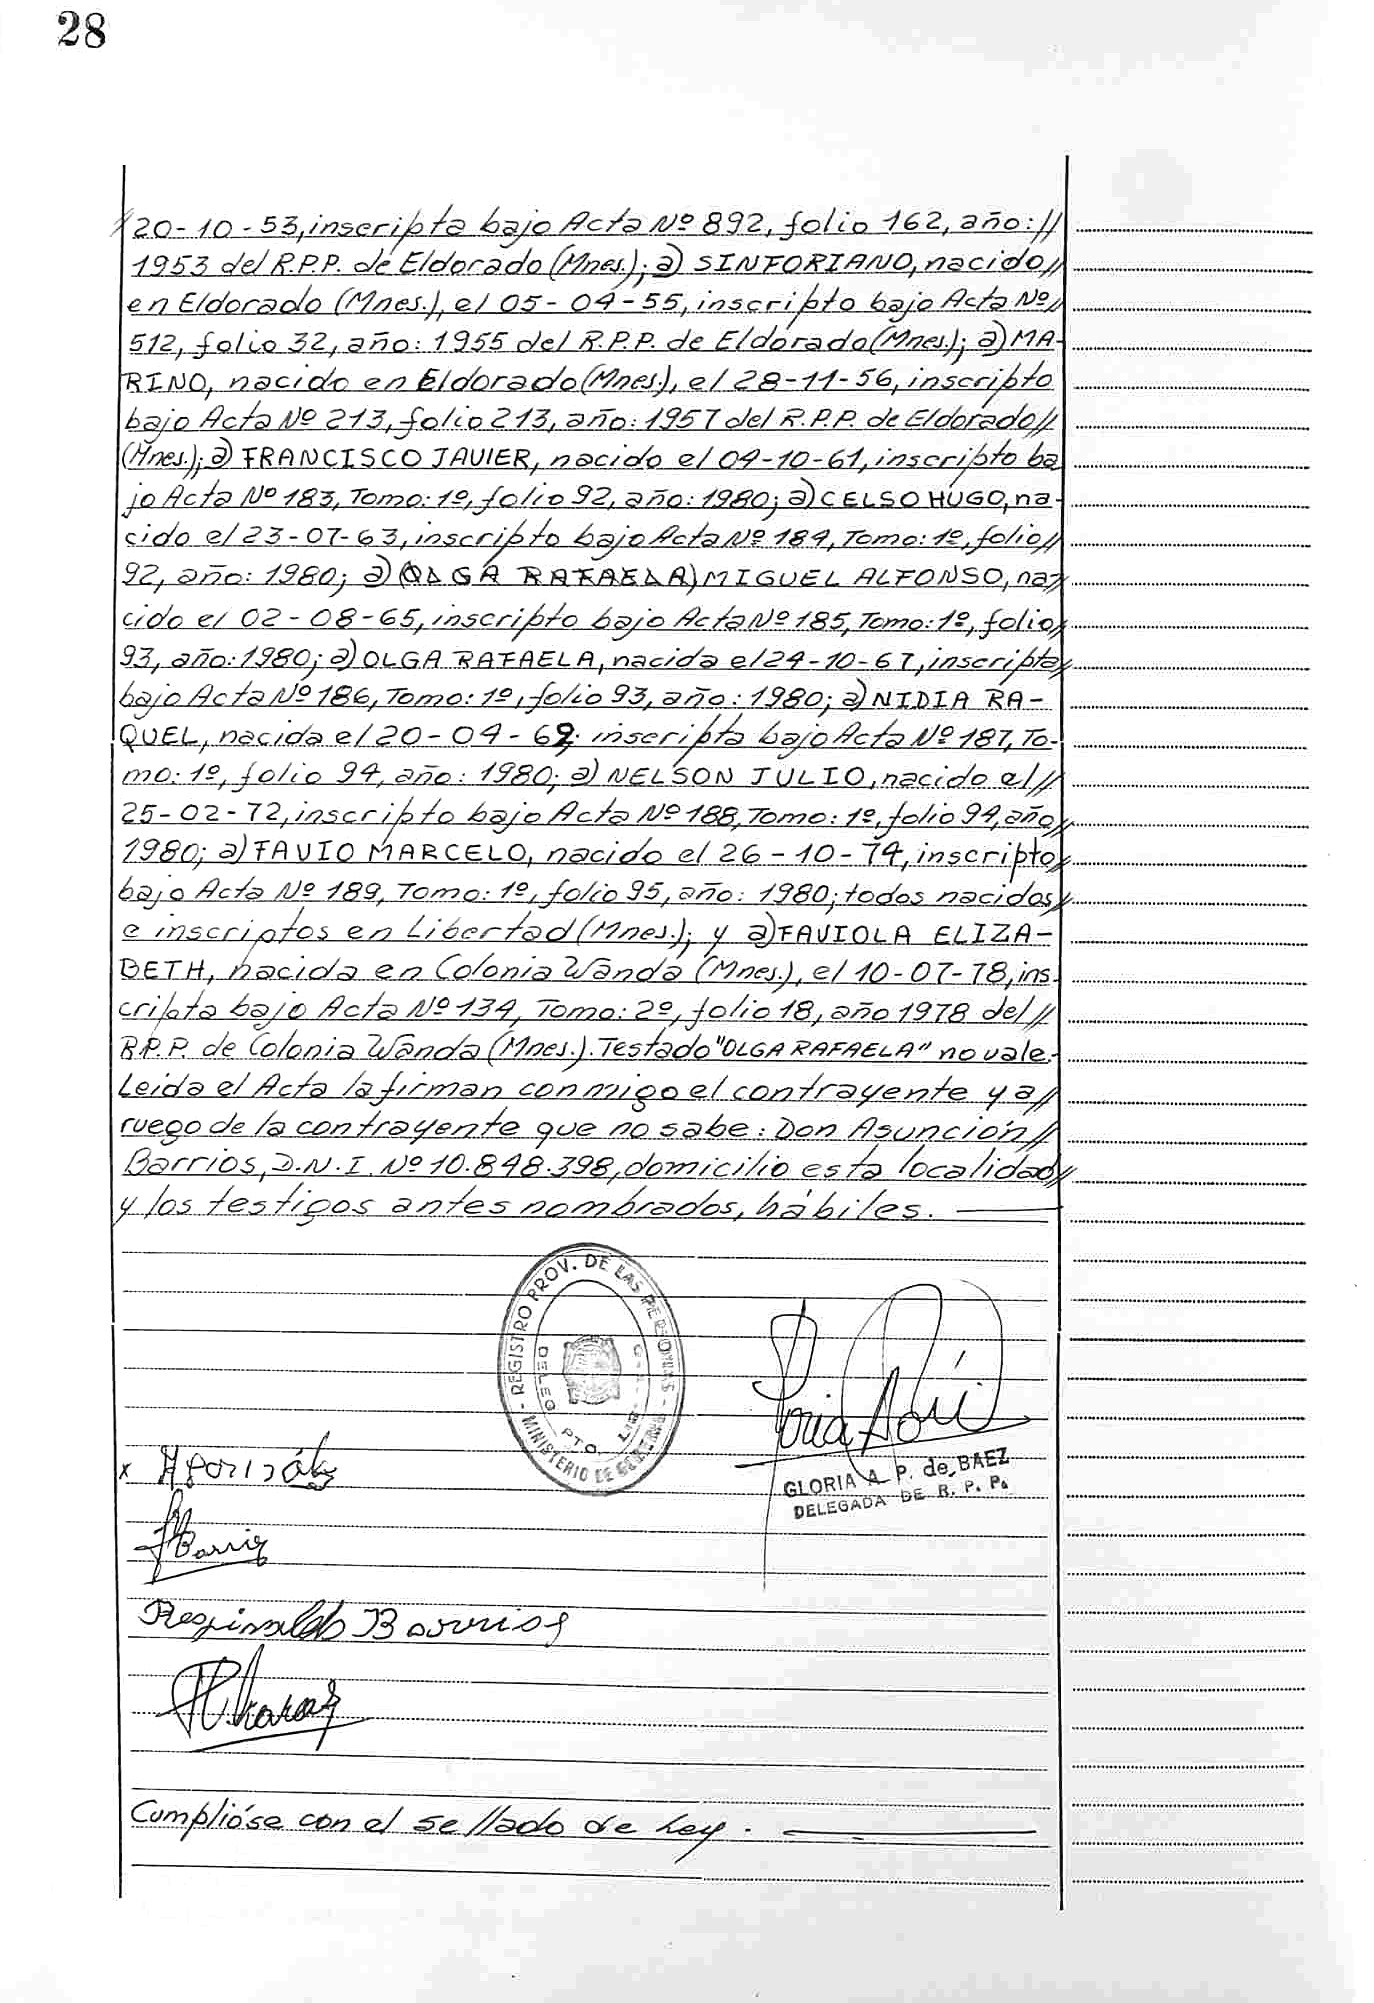 28
//20-10-53, inscripta bajo Acta Nº 892, folio 162, año://
1953 del R.P.P. de Eldorado (Mnes.); a) SINFORIANO, nacido//
en Eldorado (Mnes.), el 05-04-55, inscripto bajo Acta Nº//
512, folio 32, año: 1955 del R.P.P. de Eldorado (Mnes.); a) MA-
RINO, nacido en Eldorado (Mnes.), el 28-11-56, inscripto
bajo Acta Nº 213, folio 213, año: 1957 del R.P.P. de Eldorado//
(Mnes.); a) FRANCISCO JAVIER, nacido el 04-10-61, inscripto ba
jo Acta Nº 183, Tomo: 1º, folio 92, año: 1980; a) CELSO HUGO, na-
cido el 23-07-63, inscripto bajo Acta Nº 184, Tomo: 1º, folio//
92, año: 1980; a) (OLGA RAFAELA) MIGUEL ALFONSO, na//
cido el 02-08-65, inscripto bajo Acta Nº 185, Tomo: 1º, folio//
93, año: 1980; a) OLGA RAFAELA, nacida el 24-10-67, inscripta//
bajo Acta Nº 186, Tomo: 1º, folio 93, año: 1980; a) NIDIA RA-
QUEL, nacida el 20-04-69, inscripta bajo Acta Nº 187, To-
mo: 1º, folio 94, año: 1980; a) NELSON JULIO, nacido el//
25-02-72, inscripto bajo Acta Nº 188, Tomo: 1º, folio 94, año//
1980; a) FAVIO MARCELO, nacido el 26-10-74, inscripto//
bajo Acta Nº 189, Tomo: 1º, folio 95, año: 1980; todos nacidos//
e inscriptos en Libertad (Mnes.); y a) FAVIOLA ELIZA-
BETH, nacida en Colonia Wanda (Mnes.), el 10-07-78, ins-
cripta bajo Acta Nº 134, Tomo: 2º, folio 18, año 1978 del//
R.P.P. de Colonia Wanda (Mnes.). Testado "OLGA RAFAELA" no vale.-
Leida el Acta la firman conmigo el contrayente y a//
ruego de la contrayente que no sabe: Don Asunción//
Barrios, D.N.I. Nº 10.848.398, domicilio esta localidad//
y los testigos antes nombrados, hábiles.
REGISTRO PROV. DE LAS PERSONAS
MINISTERIO DE
PTO.
GLORIA A. P. de BAEZ
DELEGADA DE R. P. P.
x
Barrios
Reginaldo Barrios
Cumplióse con el sellado de Ley.